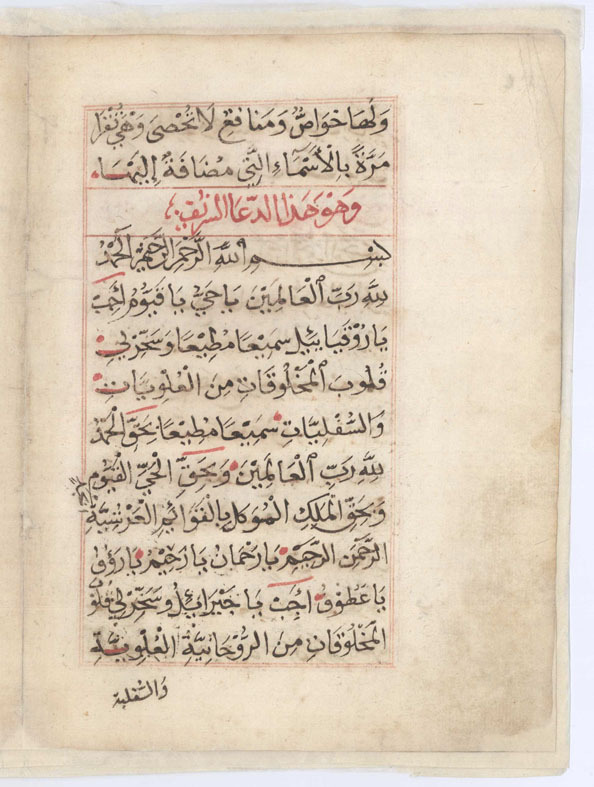 ولها خواصٌ ومنافع لا تحصى وهي تقرا
مرّةً بالأسماء التي مضافة إليها
وهو هذا الدعا الشريف
بسم الله الرحمن الرحيم الحمد
لله ربّ العالمين يا حي يا قيوم اجب
يا روقيائيل سميعا مطيعا وسخر لي
قلوب المخلوقات من العلويات
والسفليات سميعا مطيعا بحق الحمد
لله ربّ العالمين وبحق الحيّ القيّوم
وبحق الملك الموكل بالقوائم العرشية
الرحمن الرحيم يا رحمان يا رحيم يا رؤف
يا عطوف اجب يا جبرائيل وسخر لي قلوب
المخلوقات من الروحانية العلوية
والسفلية